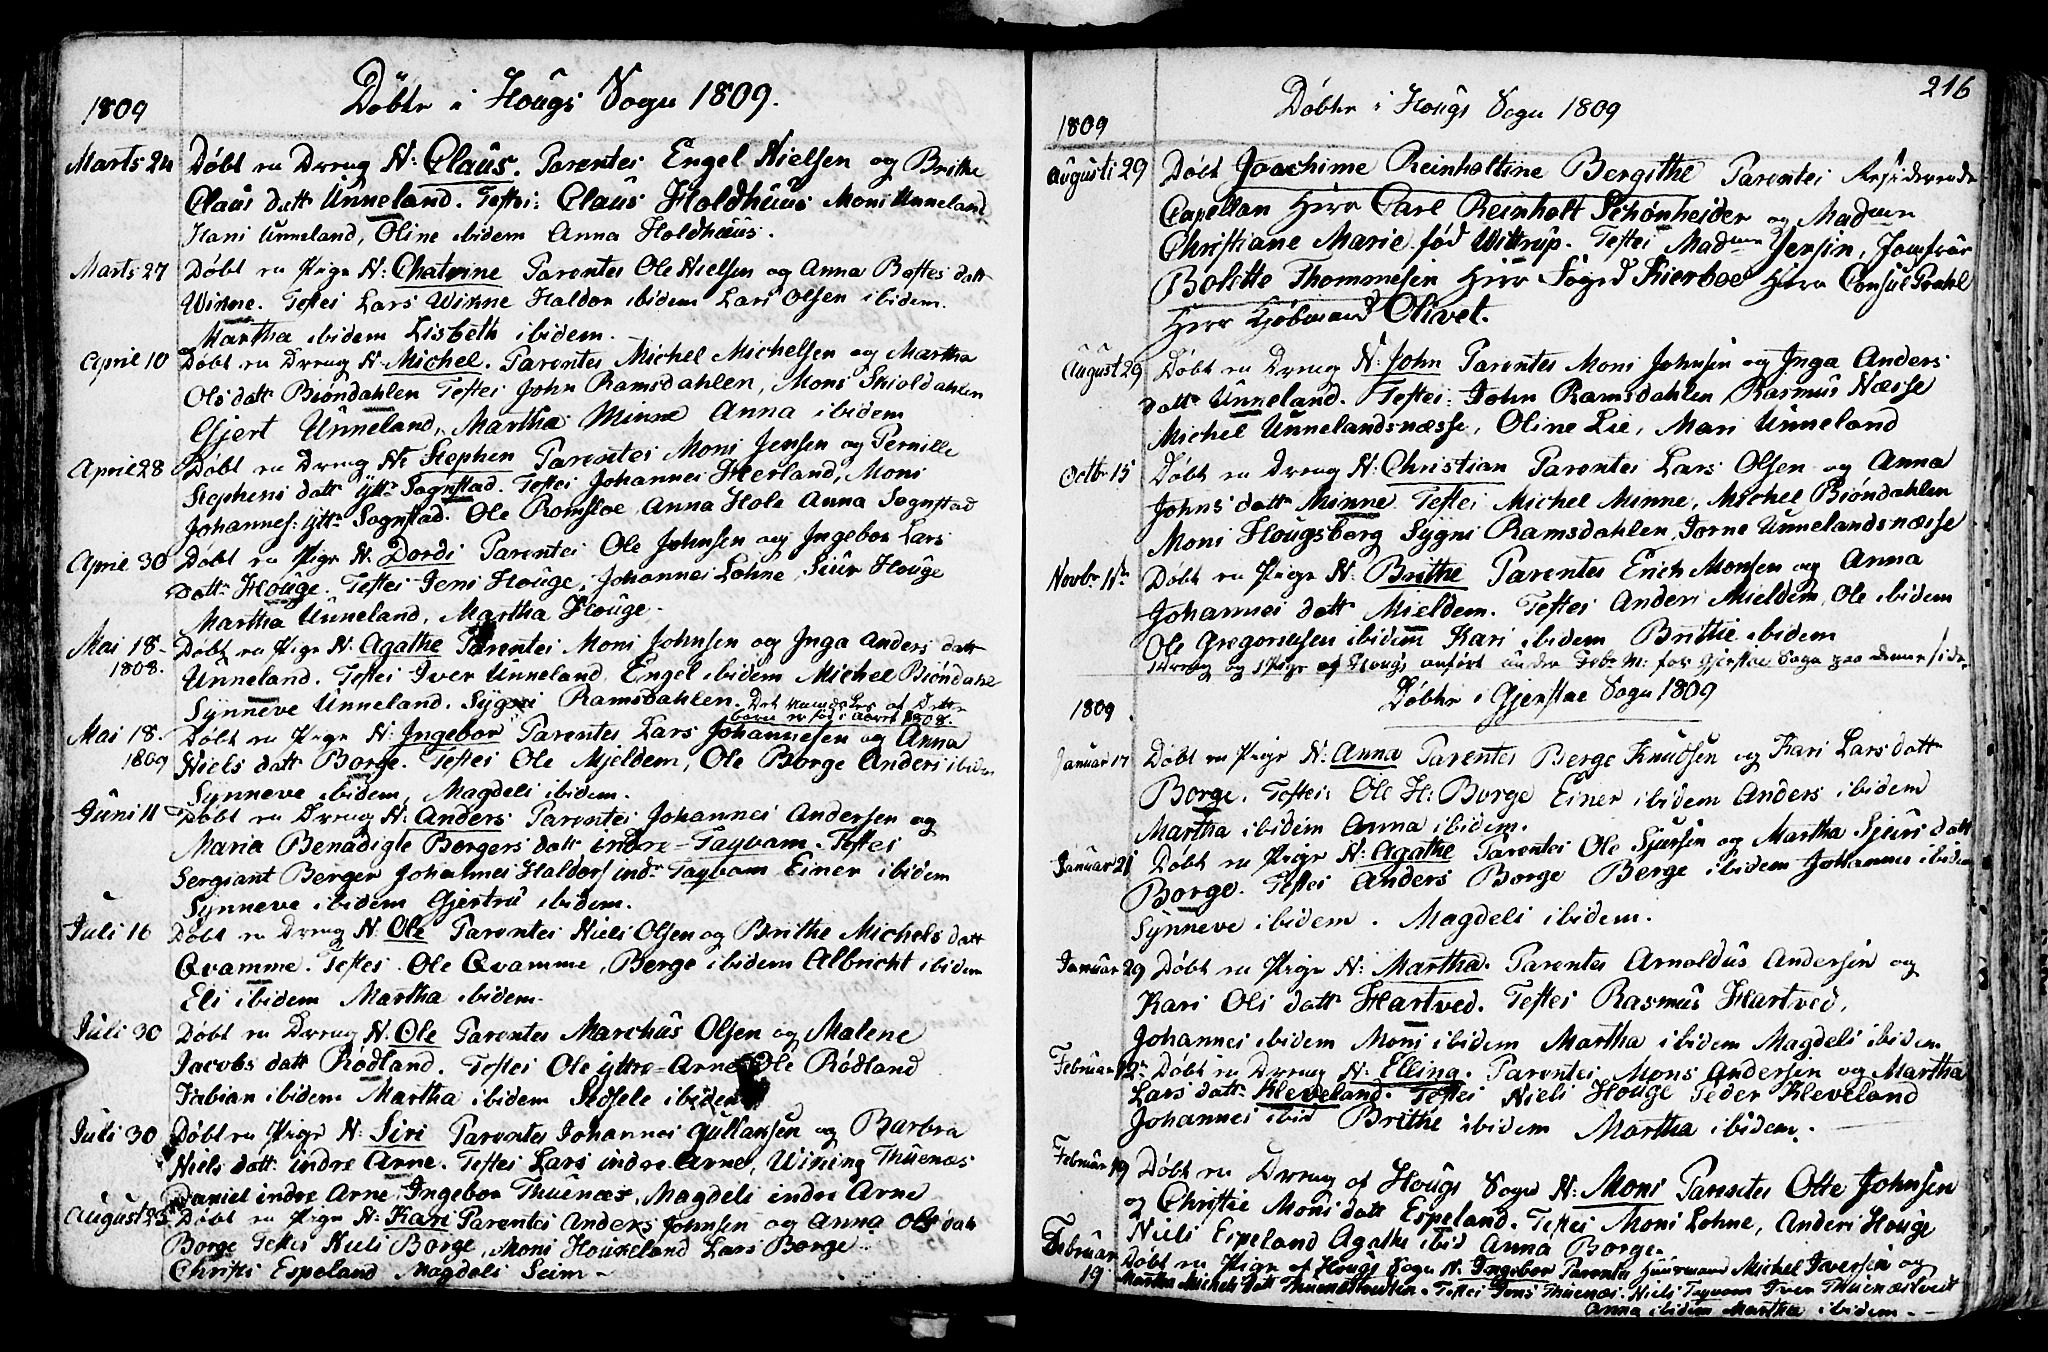 Döbte i Hougs Sogn 1809.
1809
Marts 24 Döbt en Dreng N: Claus. Parentes Engel Nielsen og Brithe
Claus datt Unneland. Testes: Claus Holdhuus Mons Unneland
Kari Unneland, Oline ibidem Anna Holdhuus.
Marts 27 Döbt en Pige N: Chatrine Parentes Ole Nielsen og Anna Bastes datt
Winne. Testes Lars Winne Haldor ibidem Lars Olsen ibidem
Martha ibidem Lisbeth ibidem.
April 10 Döbt en Dreng N: Michel. Parentes Michel Michelsen og Martha
Ols datt Biöndahlen Testes John Ramsdahlen, Mons Skioldahlen
Gjert Unneland, Martha Minne Anna ibidem
April 28 Döbt en Dreng N: Stephen Parentes Mons Jensen og Pernille
Stephens datt ÿttr Sognstad. Testes Johannes Herland, Mons
Johannes: ÿttr Sognstad. Ole Romsloe Anna Hole Anna Sognstad
April 30 Döbt en Pige N: Dordi Parentes Ole Johnsen og Ingebor Lars
datt Houge. Testes Jens Houge, Johannes Lohne, Siur Houge
Martha Unneland, Martha Houge.
Mai 18. Döbt en Pige N: Agathe Parentes Mons Johnsen og Inga Anders datt
1808. Unneland. Testes Iver Unneland, Engel ibidem Michel Biöndahl
Synneve Unneland. Sygni Ramsdahlen. Det
barn er fød i Aaret 1808.
Mai 18. Döbt en Pige N: Ingebor Parentes Lars Johannesen og Anna
1809 Niels datt Borge. Testes Ole Mjeldem, Ole Borge Anders ibidm
Synneve ibidem, Magdeli ibidem.
Juni 11 Döbt en Dreng N: Anders Parentes Johannes Andersen og
Maria Benadigte Borgers datt indre-Tagvam. Testes
Sergiant Berger Johannes Haldors indr Tagvam Einer ibidem
Synneve ibidem Gjertru ibidem.
Juli 16 Döbt en Dreng N: Ole Parentes Niels Olsen og Brithe Michels datt
Qvamme. Testes Ole Qvamme, Berge ibidem Albricht ibidem
Eli ibidem Martha ibidem.
Juli 30 Döbt en Dreng N. Ole Parentes Marchus Olsen og Malene
Jacobs datt Rödland. Testes Ole ÿttre-Arne Ole Rödland
Fabian ibidem Martha ibidem Sidsele ibidem
Juli 30 Döbt en Pige N: Siri Parentes Johannes Gullansen og Barbra
Niels datt indre Arne. Testes Lars indre Arne, Wining Thuenæs
Daniel indre Arne, Ingebor Thuenæs, Magdeli indre Arne
August 25 Döbt en Pige N: Kari Parentes Anders Johnsen og Anna Ols datt
Borge Testes Niels Borge, Mons Houkeland Lars Borge
Christi Espeland Magdeli Seim
216
Döbte i Hougs Sogn 1809
1809
Augusti 29 Döbt Joachime Reinholtine Bergithe Parentes Residerende
Capellan Herr Carl Reinholt Schönheider og Madme
Christiane Marie fød Wittrup. Testes Madme Jersin, Jomfrue
Bolette Thommesen Herr Fogd Kierboe Herr Consul Prahl
Herr Kjöbmand Olivet.
August 29 Döbt en Dreng N: John Parentes Mons Johnsen og Inga Anders
datt Unneland. Testes: John Ramsdahlen Rasmus Næsse
Michel Unnelandsnæsse, Oline Lie, Mari Unneland
Octbr 15 Döbt en Dreng N: Christian Parentes Lars Olsen og Anna
Johns datt Minne Testes Michel Minne, Michel Biöndahlen
Mons Hougsberg Sygni Ramsdahlen, Jorne Unnelandsnæsse
Novbr 1ste Döbt en Pige N: Brithe Parentes Erich Monsen og Anna
Johannes datt Mieldem. Testes Anders Mieldem, Ole ibidem
Ole Gregoriusen ibidem Kari ibidem Brithe ibidem
1 Dreng og 1 Pige af Hougs anført under Febr M: for Gjerstae Sogn paa denne side.
Döbte i Gjerstae Sogn 1809
1809
Januar 17 Döbt en Pige N: Anna Parentes Berge Knudsen og Kari Lars datt
Borge. Testes: Ole H: Borge Einer ibidem Anders ibidem
Martha ibidem Anna ibidem.
Januar 21 Döbt en Pige N: Agathe Parentes Ole Sjursen og Martha Sjurs datt
Borge. Testes Anders Borge Berge ibidem Johannes ibidem
Synneve ibidem. Magdeli ibidem.
Januar 29 Döbt en Pige N: Martha. Parentes Arnoldus Andersen og
Kari Ols datt Hartved. Testes Rasmus Hartved,
Johannes ibidem Mons ibidem Martha ibidem Magdeli ibidem
Februar 12 Döbt en Dreng N: Elling. Parentes Mons Andersen og Martha
Lars datt Kleveland. Testes Niels Houge Peder Kleveland
Johannes ibid Brithe ibidem Martha ibidem.
Februar 19 Döbt en Dreng af Hougs Sogn N: Mons Parentes Otte Johnsen
og Christie Mons datt Espeland. Testes Mons Lohne, Anders Houge
Niels Espeland Agathe ibid Anna Borge.
Februar Döbt en Pige af Hougs Sogn N: Ingebor Parentes Huusmand Michel Iversen og
19 Martha Michels datt Testes Jens Thuenæs Niels Tagvam Iver Thuenæstvedt
Anna ibidem Martha ibidem.